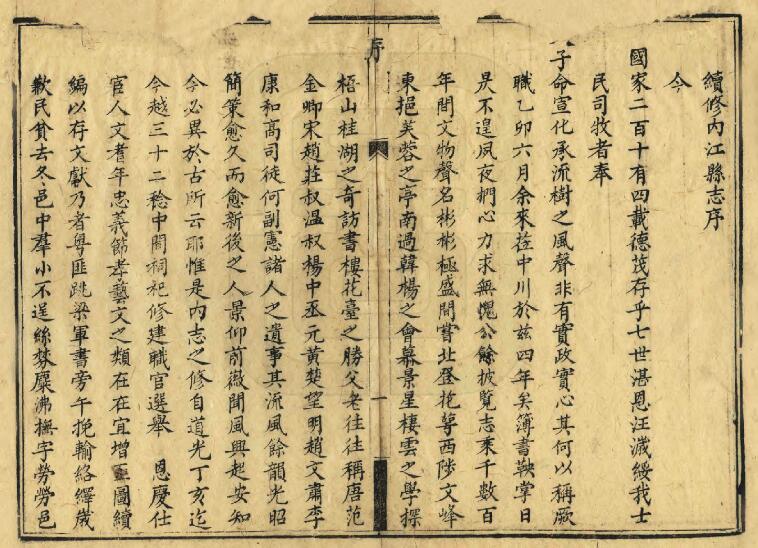 續修內江縣志序
今
國家二百十有四載德茂存乎七世湛恩汪濊綏我士
民司牧者奉
天子命宣化承流樹之風聲非有實政實心其何以稱厥
職乙卯六月余來莅中川於兹四年矣簿書鞅掌日
昃不遑夙夜捫心力求無愧公餘披覽志乘千數百
年間文物聲名彬彬極盛間嘗北登挹蕚西陟文峰
東挹芙蓉之亭南過韓楊之會慕景星棲雲之學探
梧山桂湖之奇訪書樓花臺之勝父老往往稱唐范
金卿宋趙莊叔温叔楊中丞元黄楚望明趙文肅李
康和高司徒何副憲諸人之遺事其流風餘韻光昭
簡策愈久而愈新後之人景仰前徽聞風興起安知
今必異於古所云耶惟是內志之修自道光丁亥迄
今越三十二稔中闕祠祀修建職官選舉 恩慶仕
官人文耆年忠義節孝藝文之類在在宜增亟圖續
編以存文獻乃者粤匪跳梁軍書旁午挽輸絡繹歲
歉民貧去冬邑中羣小不逞絲棼糜沸撫字勞勞邑
序
一